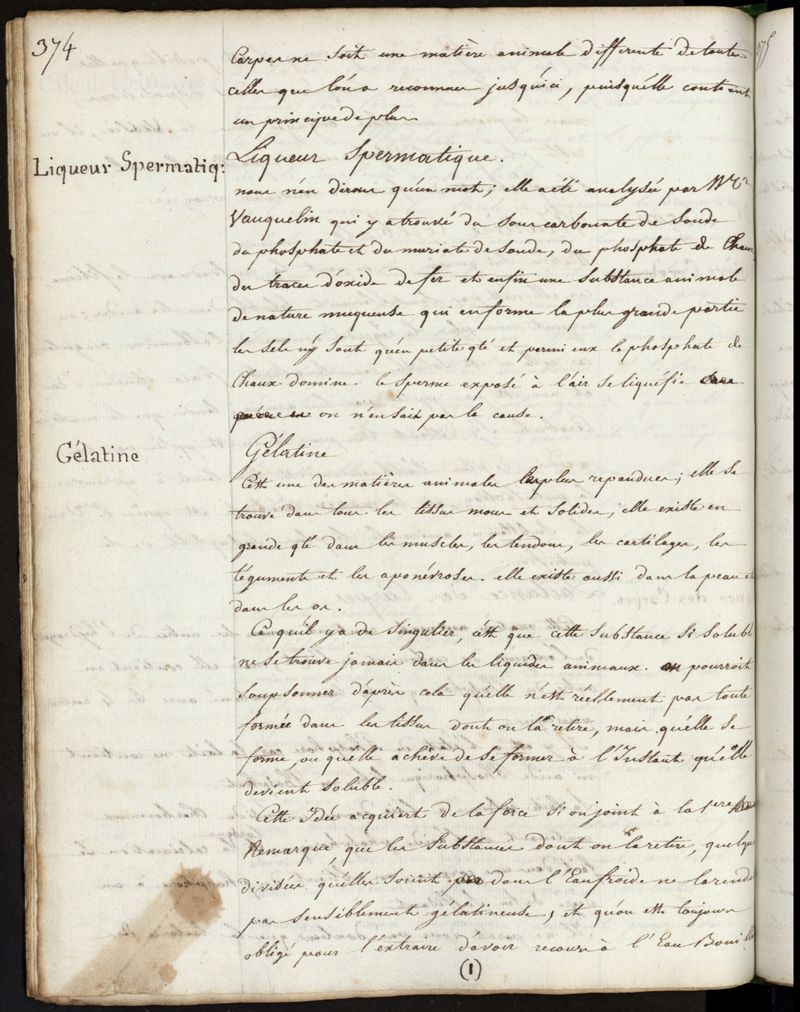 374
Carpes ne soit une matière animale differente de toutes
celles que l'on a reconnues jusqu'ici, puisqu'elle contient
un principe de plus
Liqueur Spermatiq:
Liqueur Spermatique.
nous n'en dirons qu'un mot; elle a été analysée par Mr
Vauquelin qui y a trouvé du sous carbonate de soude
du phosphate et du muriate de soude, du phosphate de Chaux
des traces d'oxide de fer et enfin une substance animale
de nature muqueuse qui en forme la plus grande partie
les sels n'y sont qu'en petite qté et parmi eux le phosphate de
Chaux domine. le sperme exposé à l'air se liquéfie
on n'en sait pas la cause.
Gélatine
Gélatine
C'est une des matières animales les plus repandues; elle se
trouve dans tous les tissus mous et solides; elle existe en
grande qté dans les muscles, les tendons, les cartilages, les
tégumens et les aponévroses. elle existe aussi dans la peau et
dans les os.
Ce qu'il y a de singulier, c'est que cette substance si soluble
ne se trouve jamais dans les liquides animaux. on pourroit
soupsonner d'après cela qu'elle n'est réellement pas toute
formée dans les tissus dont on la retire, mais qu'elle se
forme, ou qu'elle achève de se former à l'Instant qu'elle
devient soluble.
Cette Idée acquiert de la force si on joint à la 1ere
Remarque, que les substances dont on la retire, quelque
divisées qu'elles soient dans l'Eau froide ne la rendent
pas sensiblement gélatineuse, et qu'on est toujours
obligé pour l'extraire d'avoir recours à l'Eau Bouillante
(1)